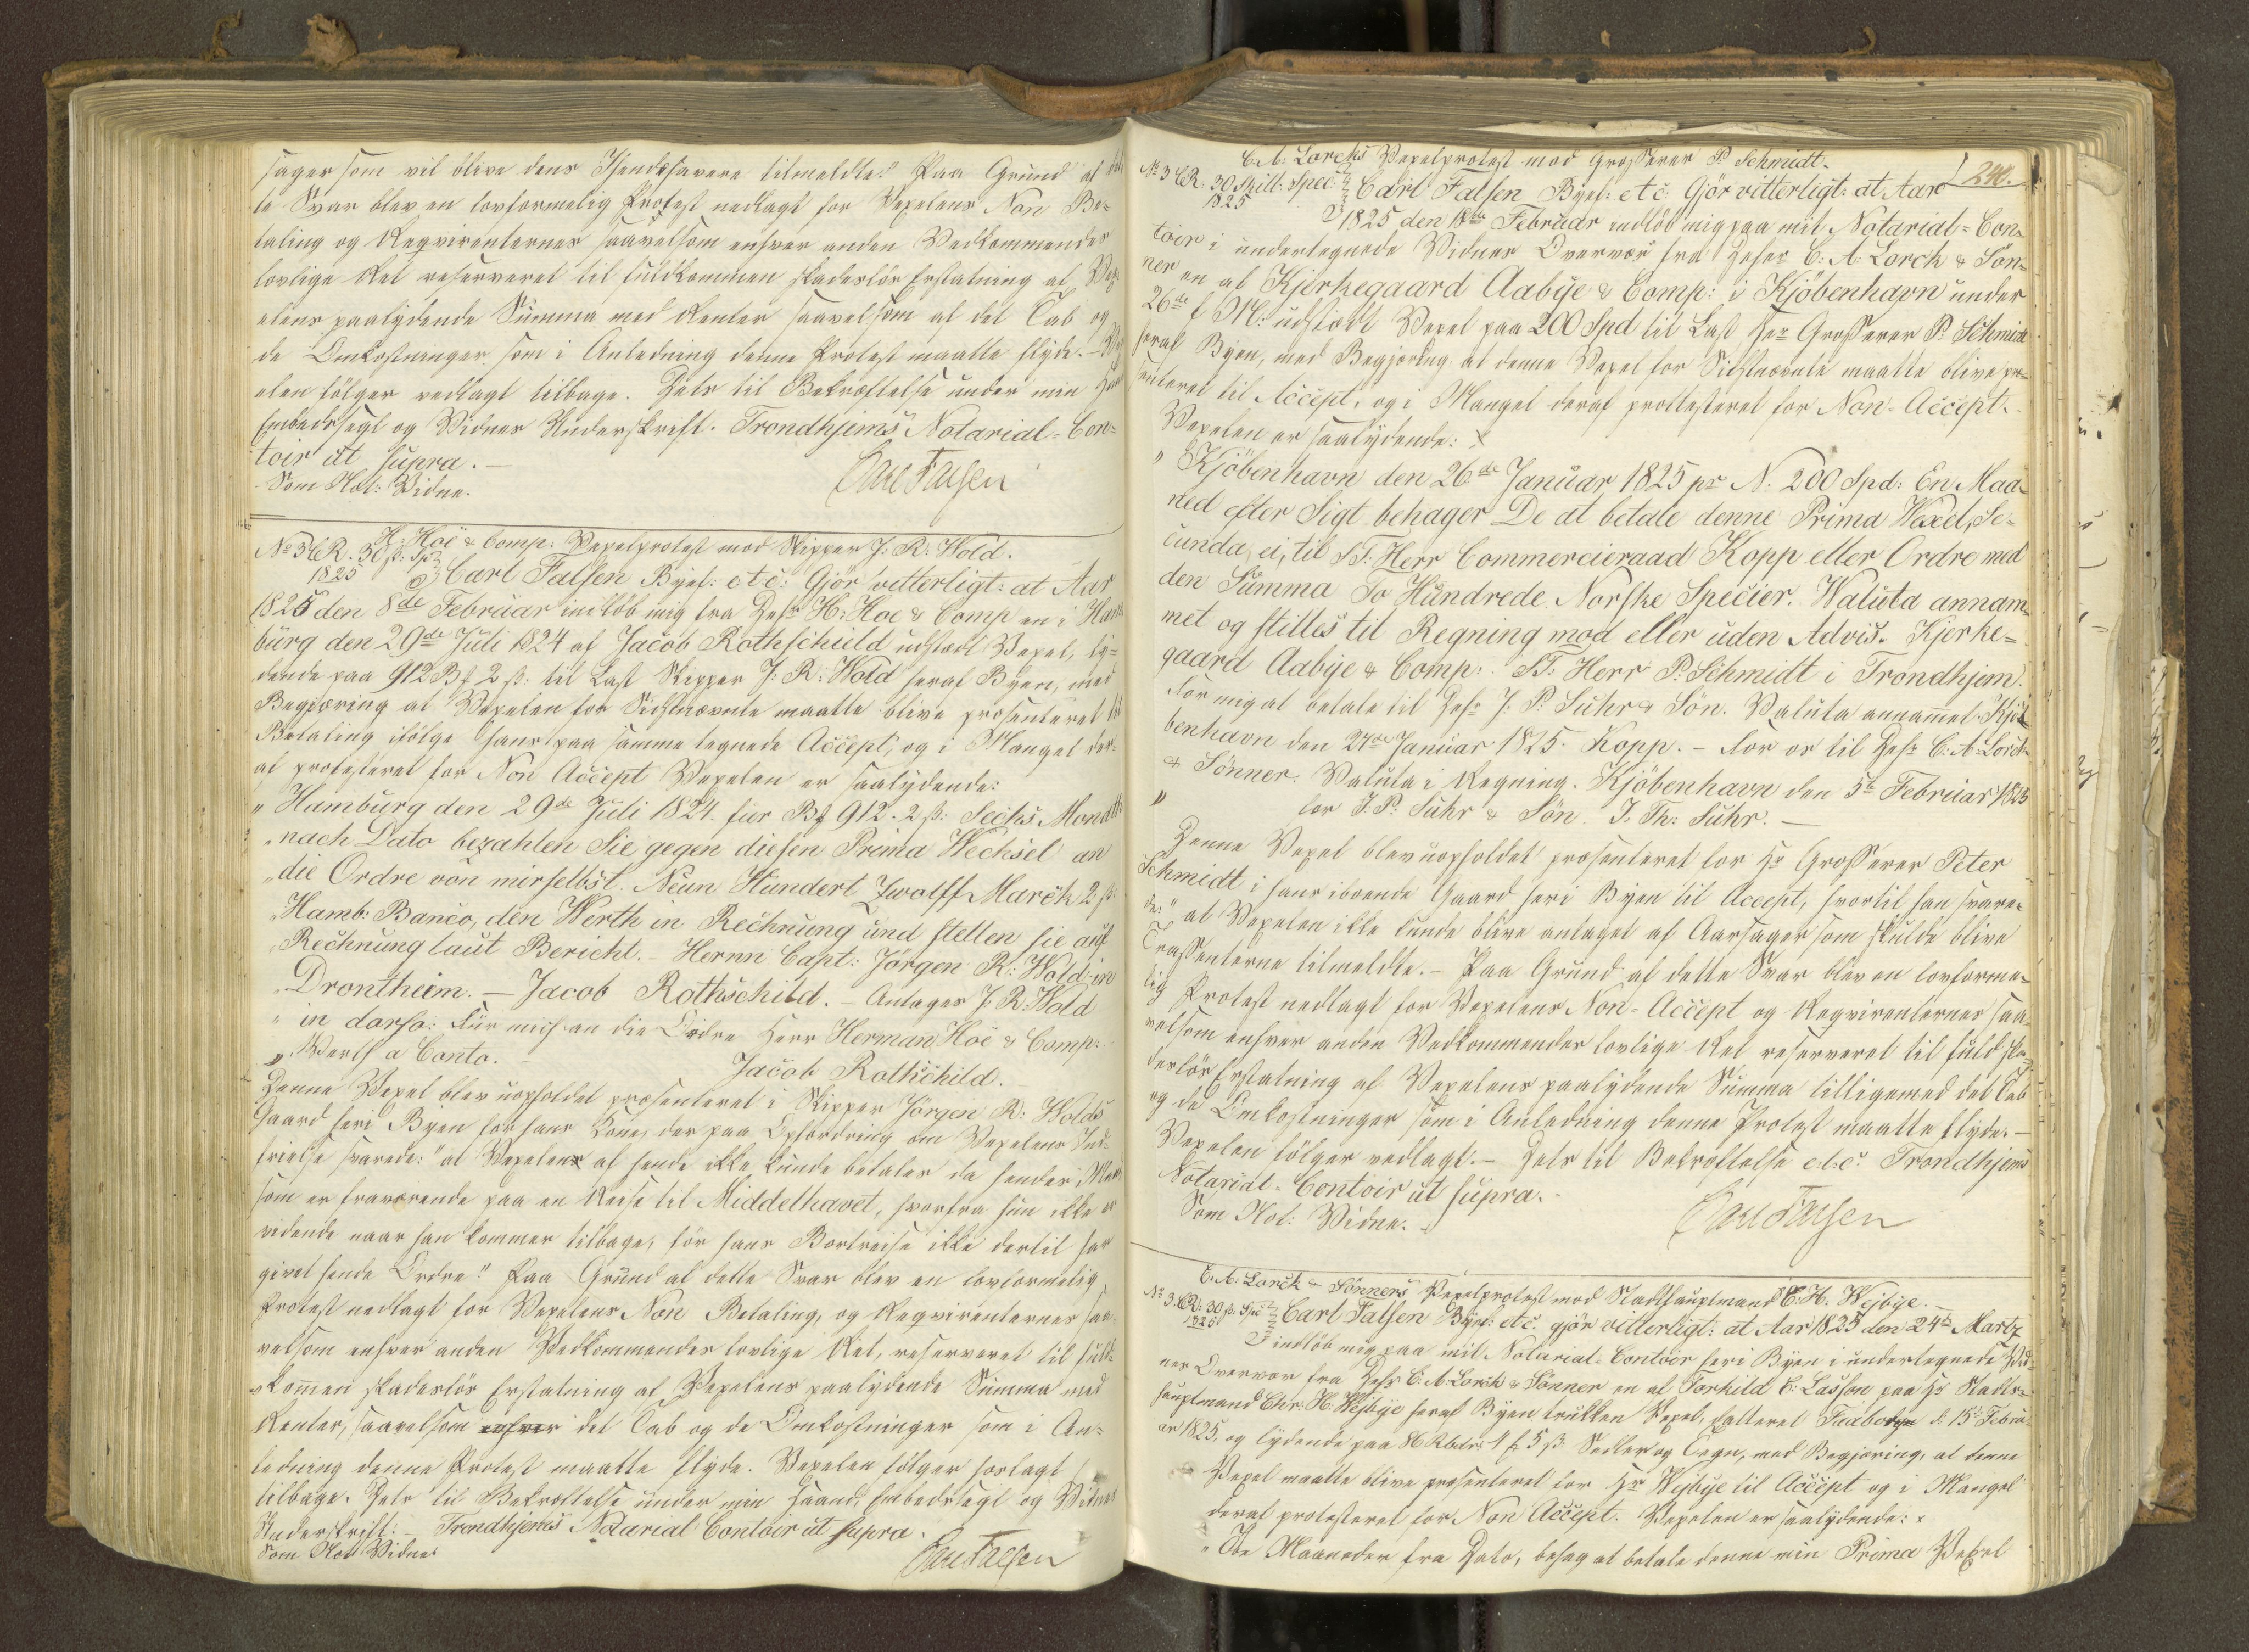 sager som vil blive dens Ihændehavere tilmeldte." Paa Grund af
te Svar blev en lovformelig Protest nedlagt for Vexelens Non Be=
taling og Reqvirenternes saavelsom enhver anden Vedkommendes
lovlige Ret reserveret til fuldkommen skadeslös Erstatning af Vex=
elens paalydende Summa med Renter saavelsom al det Tab og
de Omkostninger som i Anledning denne Protest maatte flyde. – Vex
elen fölger vedlagt tilbage. Dets til Bekræftelse under min Haand
Embedssegl og Vidnes Underskrift. Trondhjems Notarial=Con=
toir ut supra. –
Som Not: Vidne. Carl Falsen
H: Hoë & Comp: Vexelprotest mod Skipper J: R: Wold.
No 3 CR. 30 ß: Sp
1825 Carl Falsen Byef: etc: Gjör vitterligt: at Aar
1825 den 8de Februar indlöb mig fra Dhrr H: Hoe & Comp en i Ham
burg den 29de Juli 1824 af Jacob Rothschield udstædt Vexel, ly=
dende paa 912 Bf 2 ß: til Last Skipper J: R: Wold heraf Byen, med
Begjæring at Vexelen for Sidstnævnte maatte blive præsenteret til
Betaling ifölge hans paa samme tegnede Accept, og i Mangel der=
af protesteret for Non Accept Vexelen er saalydende:
" Hamburg den 29de Juli 1824. für Bf 912. 2 ß: Sechs Monath
" nach Dato bezahlen Sie gegen diesen Prima Wechsel an
" die Ordre von mir selbst. Neun Hundert Zwolff Marck 2 ß:
" Hamb: Banco, den Werth in Rechnung und stellen sie auf
" Rechnung laut Bericht. – Hernn Capt: Jörgen R: Wold in
" Drontheim. – Jacob Rothschild. – Antages J: R: Wold
" in dorso: Für mich an die Ordre Herr Herman Hoë & Comp:
" Werth a Conto. Jacob Rothschild.
Denne Vexel blev uopholdet præsenteret i Skipper Jörgen R: Wolds
Gaard heri Byen for hans Kone, der paa Opfordring om Vexelens Ind=
frielse svarede: "at Vexelen af hende ikke kunde betales da hendes Mand
som er fraværende paa en Reise til Middelhavet, hvorfra hun ikke er
vidende naar han kommer tilbage, för hans Bortreise ikke dertil har
givet hende Ordre." Paa Grund af dette Svar blev en lovformelig
Protest nedlagt for Vexelens Non Betaling, og Reqvirenternes saa
velsom enhver anden Vedkommendes lovlige Ret, reserveret til fuld=
kommen skadeslös Erstatning af Vexelens paalydende Summa med
Renter, saavelsom enhver det Tab og de Omkostninger som i An=
ledning denne Protest maatte flyde. Vexelen fölger hoslagt
tilbage. Dets til Bekræftelse under min Haand, Embedssegl og Vidnes
Underskrift: – Trondhjems Notarial Contoir ut supra.
Som Not: Vidne Carl Falsen
C. A: Lorcks Vexelprotest mod Grosserer P. Schmidt. 240.
No 3 CR. 30 Skill: Spec:
1825 Carl Falsen Byef: etc: Gjör vitterligt: at Aar
1825 den 18de Februar indlöb mig paa mit Notarial=Con=
toir i undertegnede Vidnes Overvær fra Dhrr C: A: Lorck & Sön=
ner en af Kjerkegaard Aabye & Comp: i Kjöbenhavn under
26de f: M: udstædt Vexel paa 200 Spd til Last Hr Grosserer P. Schmidt
heraf Byen, med Begjæring at denne Vexel for Sidstnævnte maatte blive præ=
senteret til Accept, og i Mangel deraf protesteret for Non=Accept.
Vexelen er saalydende: x
" Kjöbenhavn den 26de Januar 1825 pr N. 200 Spd: En Maa=
ned efter Sigt behager De at betale denne Prima Wexel, Se=
cunda, ei, til ST: Herr Commercieraad Kopp eller Ordre med
den Summa To Hundrede Norske Specier. Waluta annam=
met og stilles til Regning mod eller uden Advis. Kjerke=
gaard Aabye & Comp: ST: Herr P: Schmidt i Trondhjem.
For mig at betale til Dhrr J: P: Suhr & Sön. Valuta annamet. Kjö=
benhavn den 27de Januar 1825. Kopp. – For os til Dhrr C: A: Lorck
& Sönner. Valuta i Regning. Kjöbenhavn den 5te Februar 1825
" for J. P: Suhr & Sön. J. Th: Suhr. –
Denne Vexel blev uopholdet præsenteret for Hr Grosserer Peter
Schmidt i hans iboende Gaard heri Byen til Accept, hvortil han svare=
de: "at Vexelen ikke kunde blive antaget af Aarsager som skulde blive
Trassenterne tilmeldte. – Paa Grund af dette Svar blev en lovforme=
lig Protest nedlagt for Vexelens Non=Accept og Reqvirenternes saa
velsom enhver anden Vedkommendes lovlige Ret reserveret til fuld ska=
deslös Erstatning af Vexelens paalydende Summa tilligemed det Tab
og de Omkostninger som i Anledning denne Protest maatte flyde. –
Vexelen fölger vedlagt. – Dets til Bekræftelse etc: Trondhjems
Notarial=Contoir ut supra. –
Som Not: Vidne. Carl Falsen
C. A: Lorck & Sönners Vexelprotest mod Stadshauptmand C: H: Wejbye. –
No 3. CR: 30 ß: Spc
1825 Carl Falsen Byef: etc: gjör vitterligt: at Aar 1825 den 24de Martz
indlöb mig paa mit Notarial=Contoir heri Byen i undertegnede Vid=
nes Overvær fra Dhrr C: A: Lorck & Sönner en af Torkild C: Lasson paa Hr Stads=
hauptmand Chr: H: Wejbye heraf Byen trukken Vexel, datteret Faaborg d: 15de Febru
ar 1825, og lydende paa 86 Rbdr 4 f 5 ß Sedler og Tegn, med Begjæring, at denne
Vexel maatte blive præsenteret for Hr Wejbye til Accept og i Mangel
deraf protesteret for Non Accept. Vexelen er saalydende: x
" Tre Maaneder fra Dato, behag at betale denne min Prima Vexel